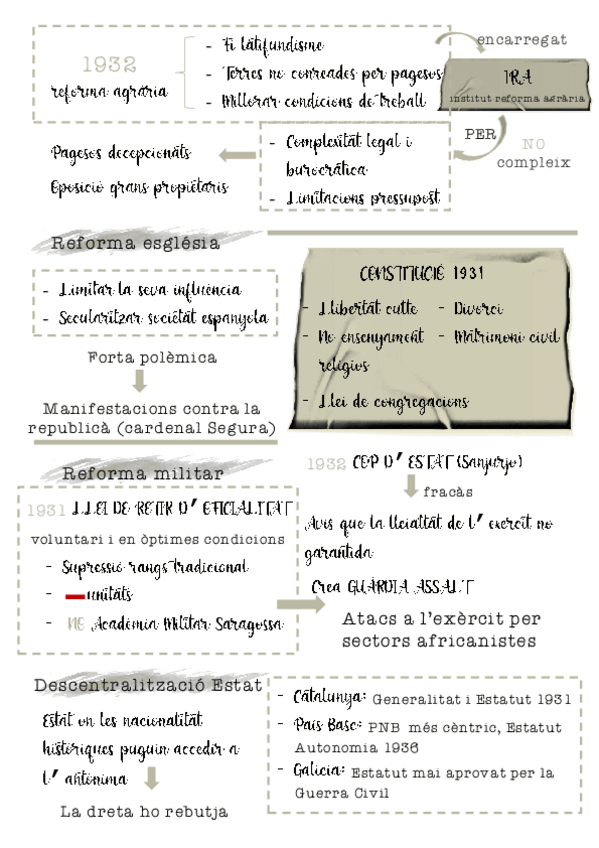 1932
reforma agrària
- Fi latifundisme
- Terres no conreades per pagesos
- Millorar condicions de treball
encarregat
IRA
institut reforma agrària
PER
NO
compleix
- Complexitat legal i
burocràtica
- Limitacions pressupost
Pagesos decepcionats
Oposició grans propietaris
Reforma església
- Limitar la seva influència
- Secularitzar societat espanyola
Forta polèmica
Manifestacions contra la
republicà (cardenal Segura)
CONSTITUCIÓ 1931
- Llibertat culte - Divorci
- No ensenyament - Matrimoni civil
religiós
- Llei de congregacions
Reforma militar
1931 LLEI DE RETIR D' OFICIALITAT
voluntari i en òptimes condicions
- Supressió rangs tradicional
- unitats
- NO Acadèmia Militar Saragossa
1932 COP D' ESTAT (Sanjurjo)
fracàs
Avís que la lleialtat de l' exercit no
garantida
Crea GUÀRDIA ASSALT
Atacs a l'exèrcit per
sectors africanistes
Descentralització Estat
Estat on les nacionalitat
històriques puguin accedir a
l' autònima
La dreta ho rebutja
- Catalunya: Generalitat i Estatut 1931
- País Basc: PNB més cèntric, Estatut
Autonomia 1936
- Galícia: Estatut mai aprovat per la
Guerra Civil